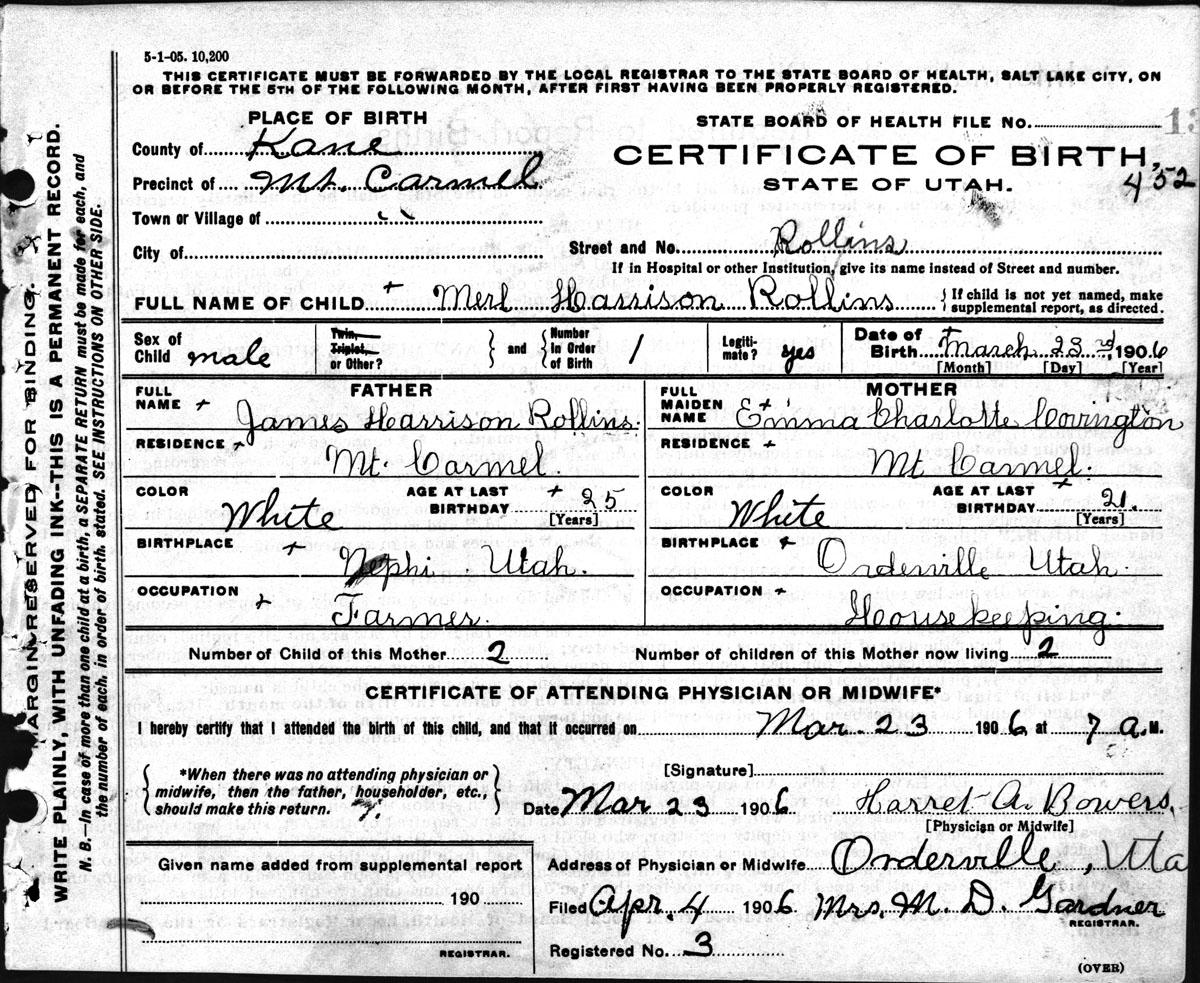 5-1-05. 10,200
THIS CERTIFICATE MUST BE FORWARDED BY THE LOCAL REGISTRAR TO THE STATE BOARD OF HEALTH, SALT LAKE CITY, ON
OR BEFORE THE 5TH OF THE FOLLOWING MONTH, AFTER FIRST HAVING BEEN PROPERLY REGISTERED.
PLACE OF BIRTH
STATE BOARD OF HEALTH FILE No.
County of Kane
CERTIFICATE OF BIRTH,
Precinct of Mt. Carmel
STATE OF UTAH.
452
Town or Village of "
City of
Street and No. Rollins
If in Hospital or other Institution, give its name instead of Street and number.
FULL NAME OF CHILD + Merl Harrison Rollins { If child is not yet named, make supplemental report, as directed.
Sex of Child male
Twin, Triplet, or Other? } and { Number in Order of Birth 1
Legiti- mate? yes
Date of Birth March 23rd 1906
[Month] [Day] [Year]
FATHER
FULL NAME + James Harrison Rollins.
RESIDENCE + Mt. Carmel.
COLOR White AGE AT LAST BIRTHDAY + 25 [Years]
BIRTHPLACE + Nephi Utah.
OCCUPATION + Farmer.
MOTHER
FULL MAIDEN NAME + Emma Charlotte Covington
RESIDENCE + Mt. Carmel.
COLOR White AGE AT LAST BIRTHDAY + 21. [Years]
BIRTHPLACE + Orderville Utah.
OCCUPATION + Housekeeping.
Number of Child of this Mother 2 Number of children of this Mother now living 2
CERTIFICATE OF ATTENDING PHYSICIAN OR MIDWIFE*
I hereby certify that I attended the birth of this child, and that it occurred on Mar. 23 1906 at 7 a. M.
{ *When there was no attending physician or midwife, then the father, householder, etc., should make this return. }
[Signature]
Date Mar 23 1906 Harret A. Bowers.
[Physician or Midwife]
Given name added from supplemental report
190
REGISTRAR.
Address of Physician or Midwife Orderville, Uta
Filed Apr. 4 1906 Mrs. M. D. Gardner
REGISTRAR.
Registered No. 3
(OVER)
MARGIN RESERVED FOR BINDING.
WRITE PLAINLY, WITH UNFADING INK--THIS IS A PERMANENT RECORD.
N. B.--In case of more than one child at a birth, a SEPARATE RETURN must be made for each, and
the number of each, in order of birth, stated. SEE INSTRUCTIONS ON OTHER SIDE.